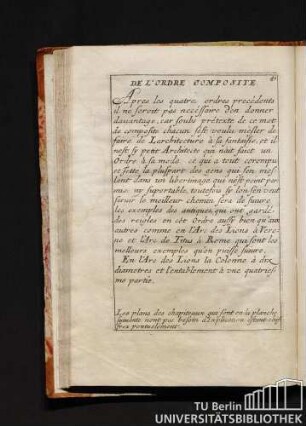 DE L'ORDRE COMPOSITE
Apres les quatre ordres precedents
il ne seroit pas necessaire d'en donner
dauantage, car soubz pretexte de ce mot
de composite chacun s'est voulu mesler de
faire de L'architecture à sa fantaisie, et il
n'est si petit Architecte qui n'ait faict un
Ordre à sa mode, et que a tout corrompu
et la pluspart des gens qui s'en mes
lent dans un libertinage qui n'est point per
mis, ny suportable, toutefois se l'on s'en veut
seruir le meilleur chemin sera de suiure
les exemples des antiques qui ont gardé
des regles en cet Ordre aussy bien qu'aux
autres comme en l'Arc des Lions à Vero
ne et l'Arc de Titus à Rome qui sont les
meilleurs exemples qu'on puisse suiure.
En l'Arc des Lions la Colonne a dix
diametres et l'entablement à vne quatries
me partie.
Les plans des chapiteaux qui sont en la planche
suiuante n'ont pas besoin d'explication estant
ponctuelement.
TU Berlin
UNIVERSITÄTSBIBLIOTHEK